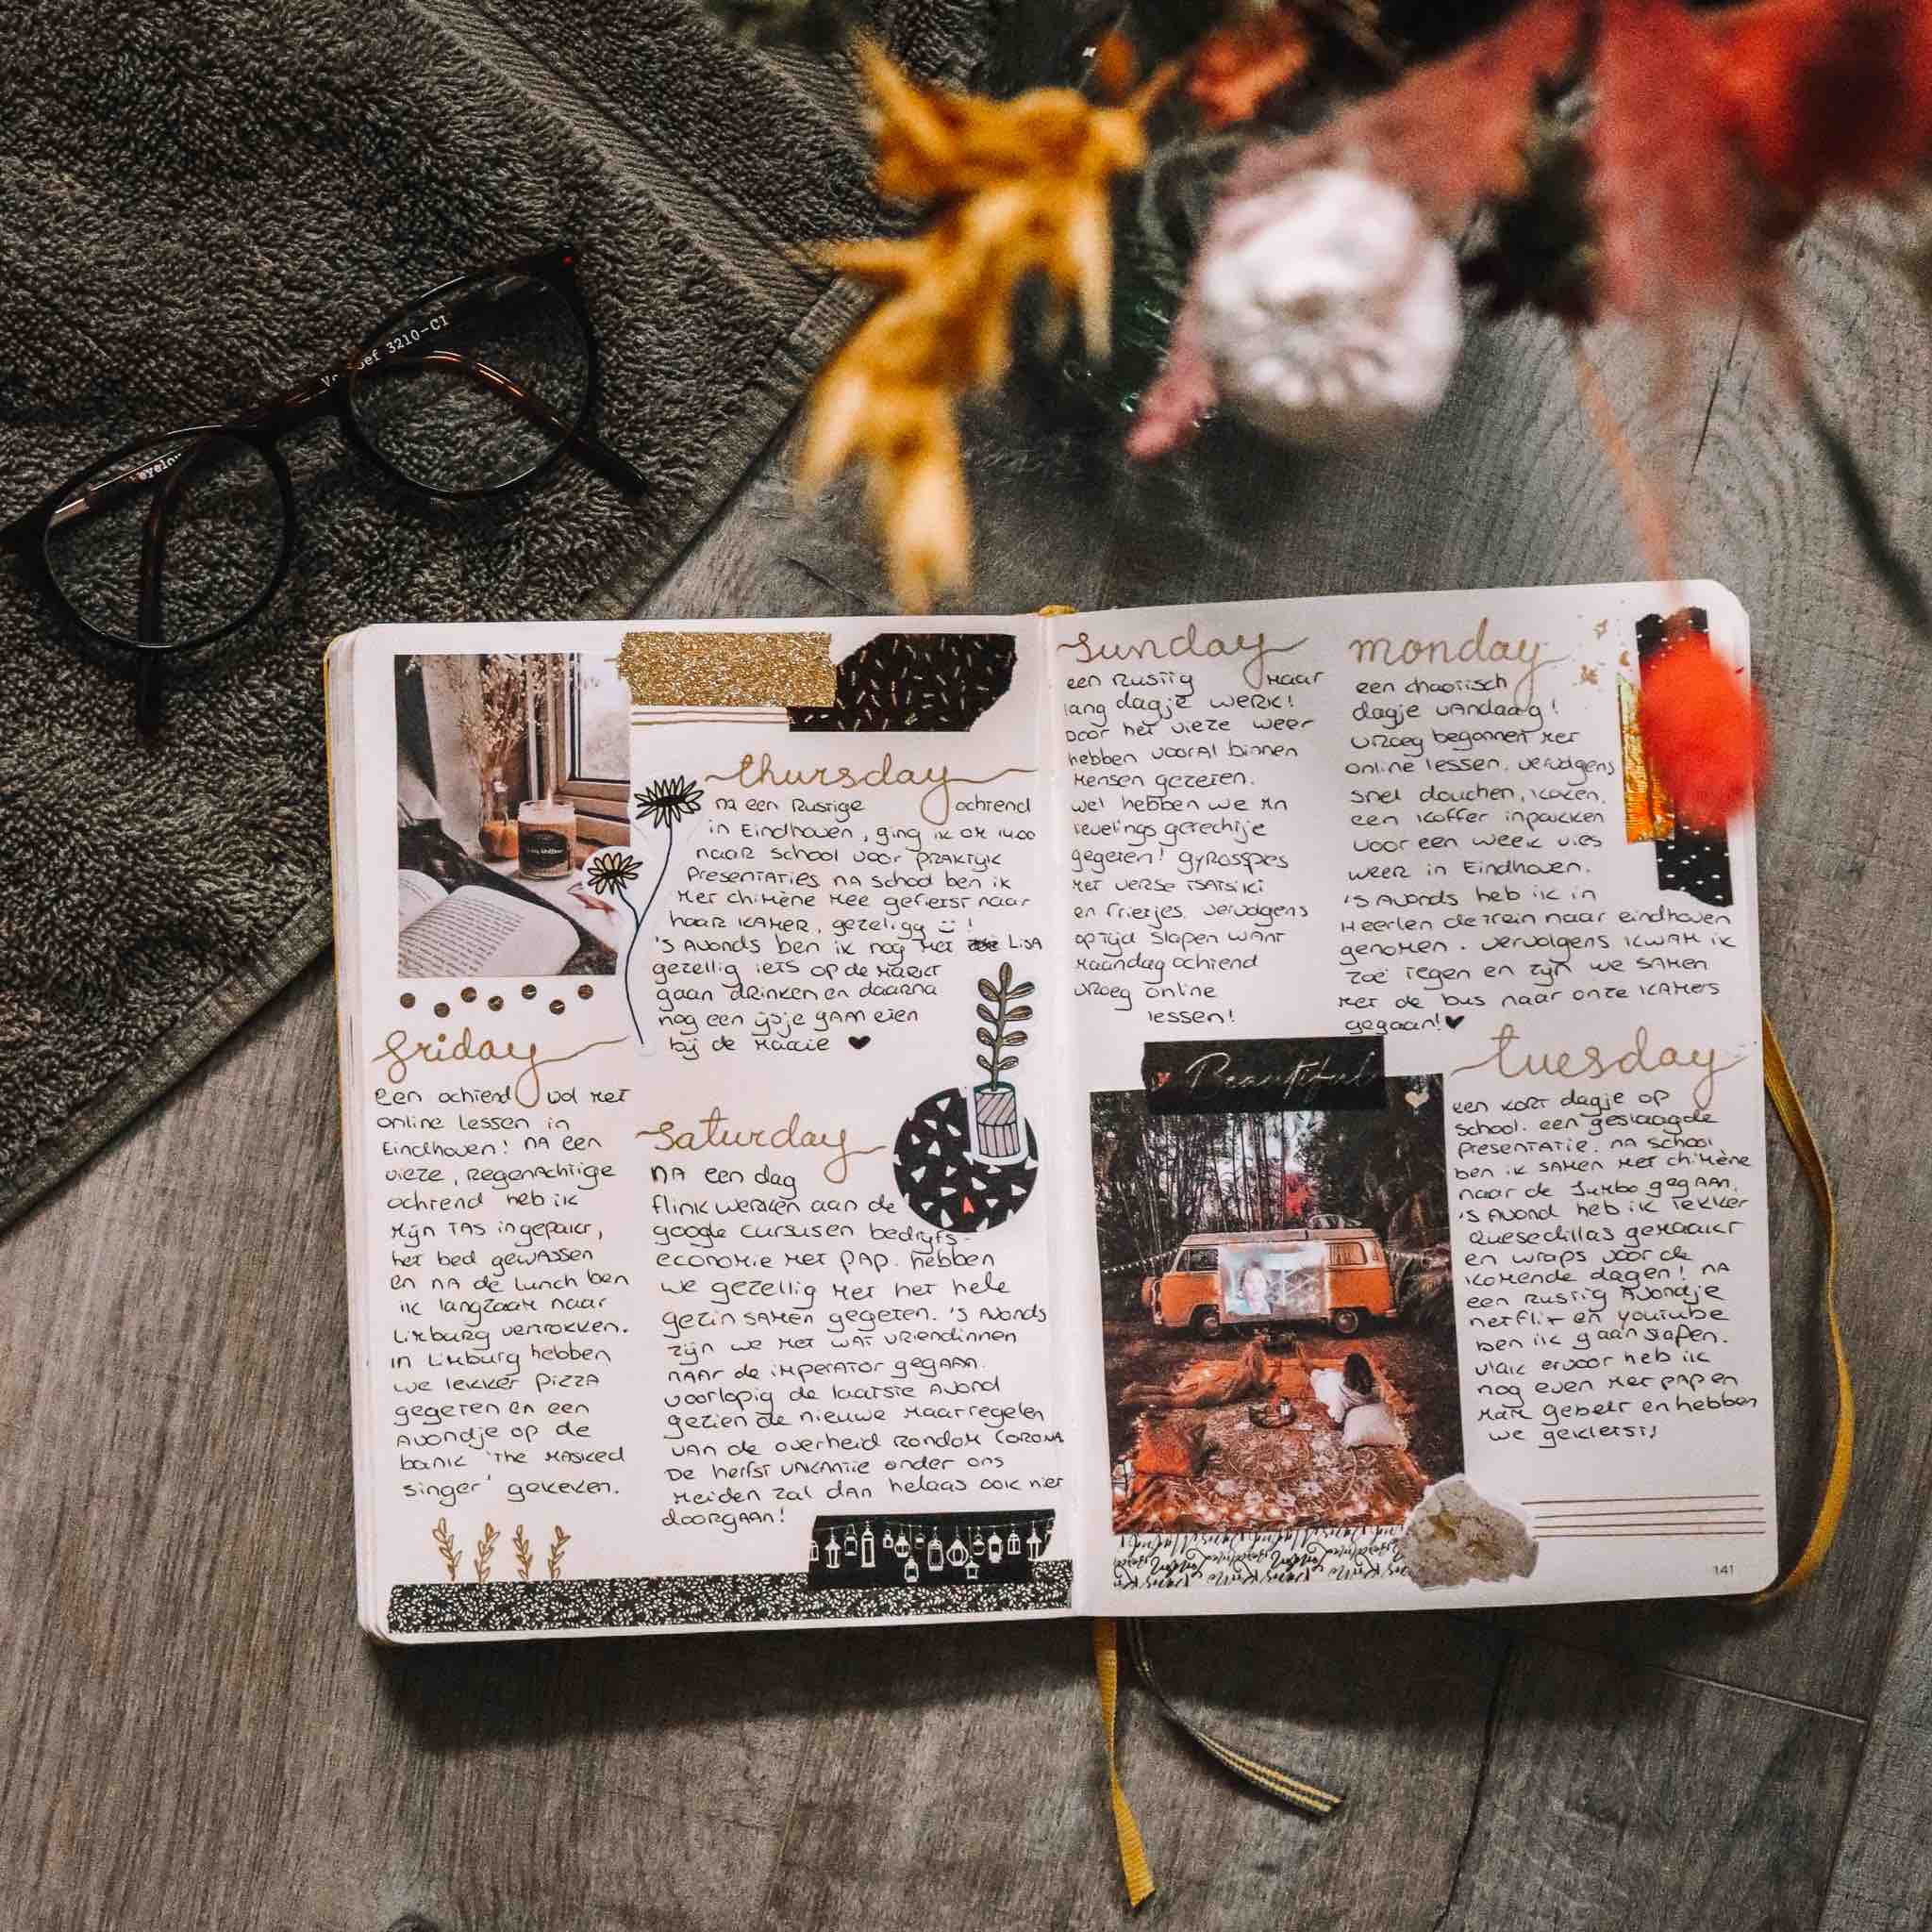 3210-CI
thursday
na een rustige ochtend
in Eindhoven, ging ik om 14.00
naar school voor praktijk
presentaties na school ben ik
met chimène mee gefietst naar
haar kamer, gezeligg !
's avonds ben ik nog met Lisa
gezellig iets op de markt
gaan drinken en daarna
nog een ijsje gaan eten
bij de
friday
een ochtend vol met
online lessen in
Eindhoven! na een
vieze, regenachtige
ochtend heb ik
mijn tas ingepakt,
het bed gewassen
en na de lunch ben
ik langzaam naar
Limburg vertrokken.
in Limburg hebben
we lekker pizza
gegeten en een
avondje op de
bank 'the masked
singer' gekeken.
saturday
na een dag
flink werken aan de
google cursusen bedrijfs-
economie met pap. hebben
we gezellig met het hele
gezin samen gegeten. 's avonds
zijn we met wat vriendinnen
naar de imperator gegaan.
voorlopig de laatste avond
gezien de nieuwe maatregelen
van de overheid rondom corona
De herfst vakantie onder ons
meiden zal dan helaas ook niet
doorgaan!
sunday
een rustig maar
lang dagje werk!
Door het vieze weer
hebben vooral binnen
mensen gezeten.
wel hebben we mn
levelings gerechtje
gegeten! gyrosspies
met verse tsatsiki
en frietjes. vervolgens
op tijd slapen want
maandag ochtend
vroeg online
lessen!
monday
een chaotisch
dagje vandaag!
vroeg begonnen met
online lessen. vervolgens
snel douchen, koken,
een koffer inpakken
voor een week vies
weer in Eindhoven.
's avonds heb ik in
Heerlen de trein naar eindhoven
genomen. vervolgens kwam ik
zoë tegen en zijn we samen
met de bus naar onze kamers
gegaan!
Beautiful
tuesday
een kort dagje op
school. een geslaagde
presentatie. na school
ben ik samen met chimène
naar de Jumbo gegaan.
's avond heb ik lekker
quesedillas gemaakt
en wraps voor de
komende dagen! na
een rustig avondje
netflix en youtube
ben ik gaan slapen.
vlak ervoor heb ik
nog even met pap en
mam gebelt en hebben
we gekletst!
141